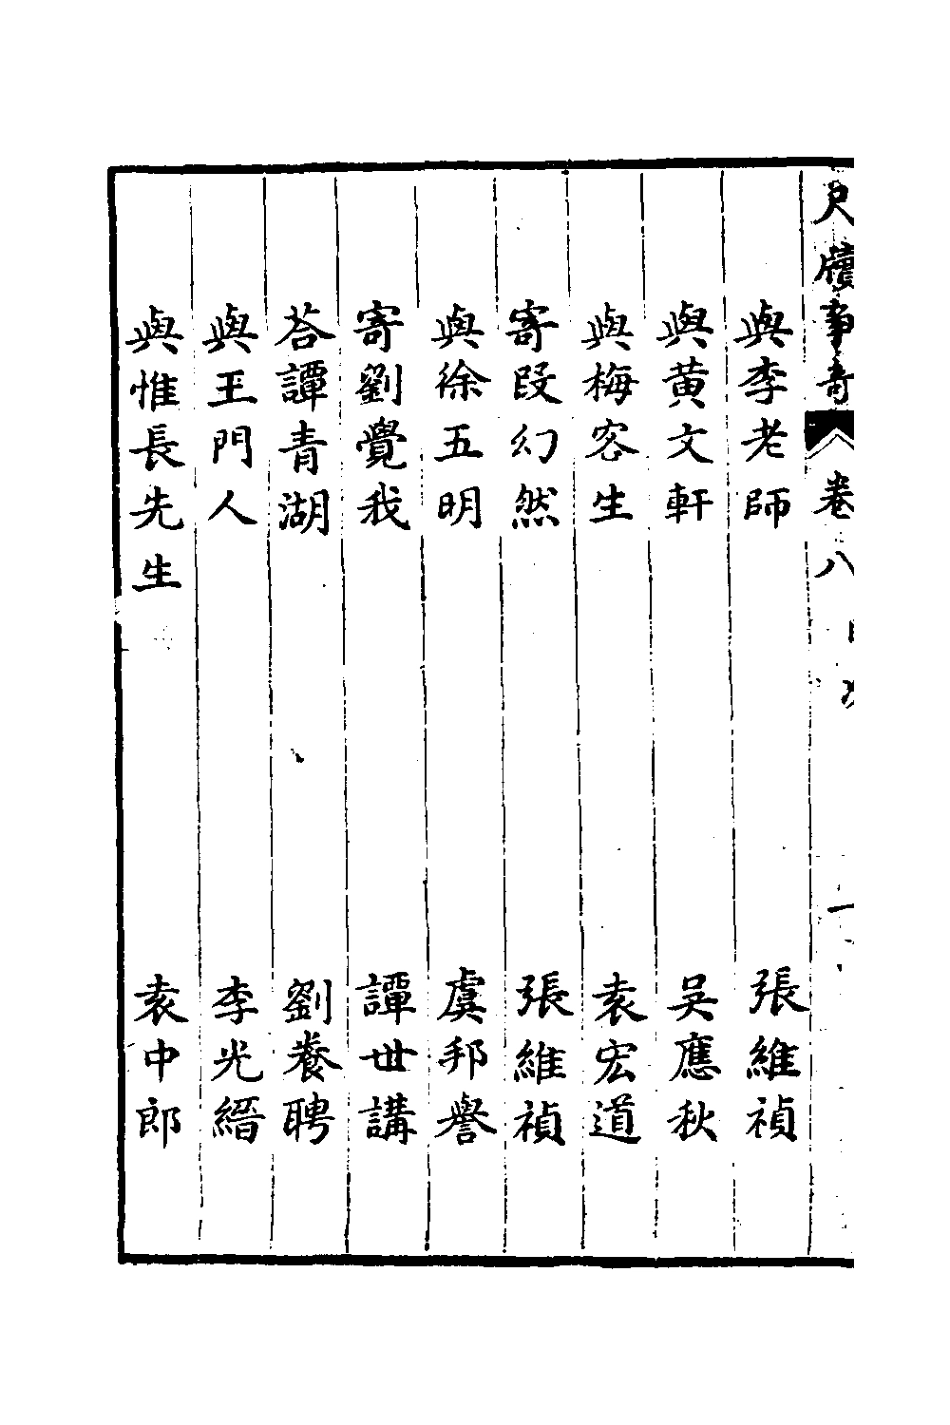 尺牘爭奇 卷八 目次 一
與李老師 張維禎
與黄文軒 吴應秋
與梅客生 袁宏道
寄段幻然 張維禎
與徐五明 虞邦譽
寄劉覺我 譚世講
荅譚青湖 劉養聘
與王門人 李光縉
與惟長先生 袁中郎